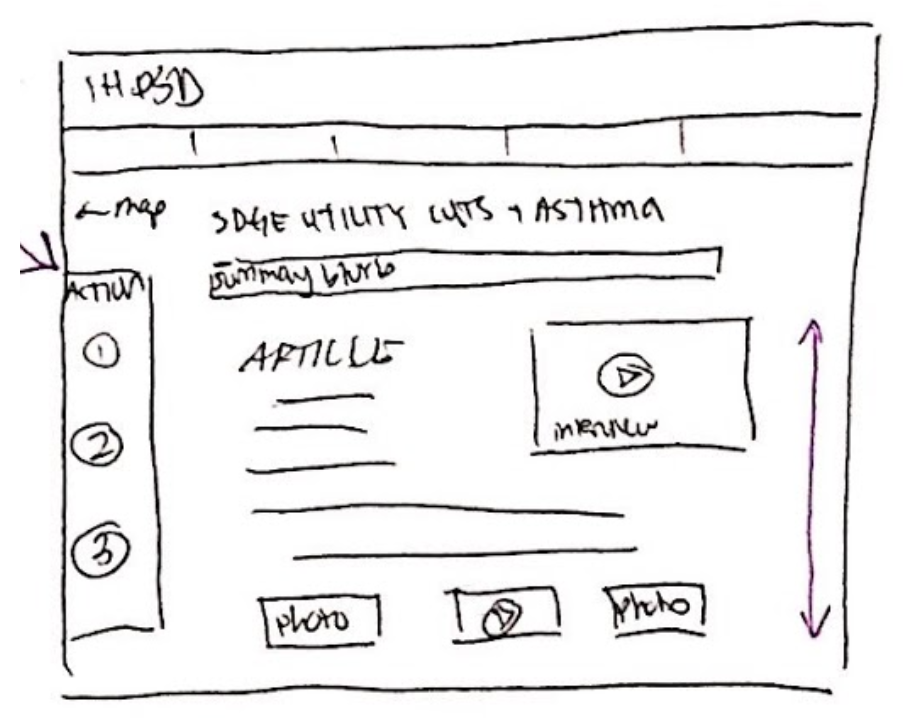 IHPSD
← map
SDGE UTILITY CUTS + ASTHMA
summary blurb
ACTION
1
2
3
ARTICLE
interview
photo
photo